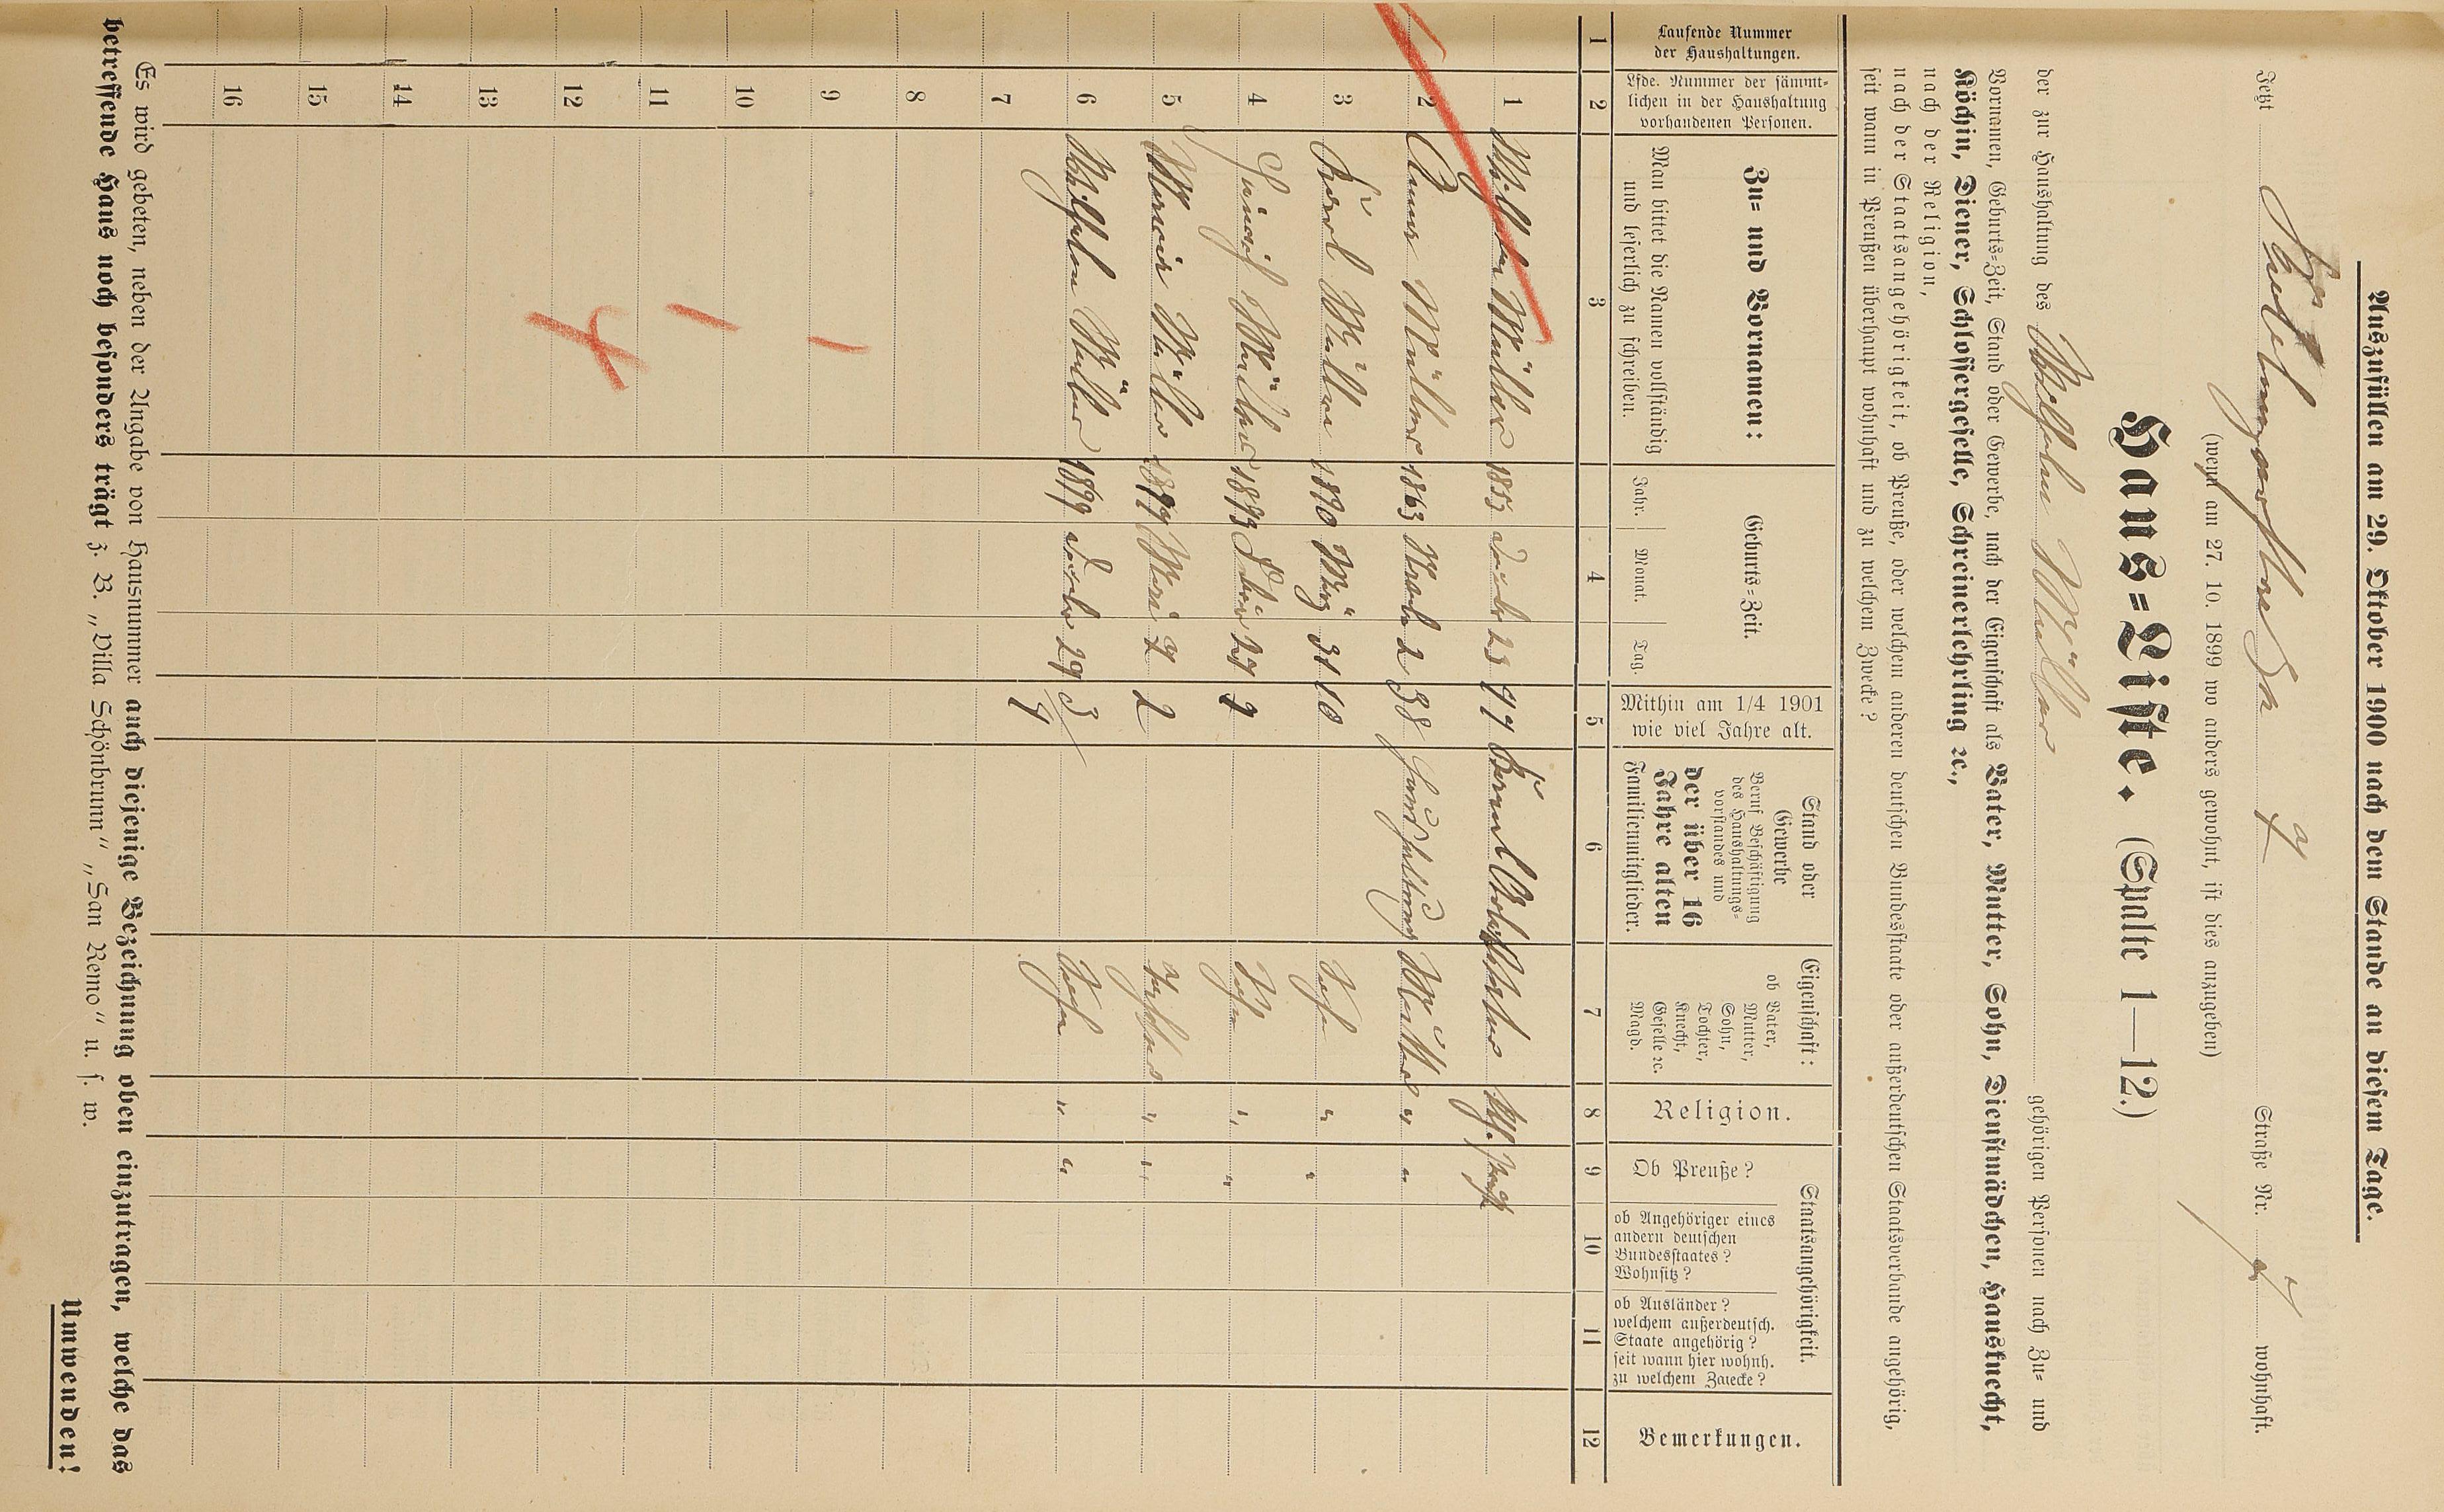 Auszufüllen am 29. Oktober 1900 nach dem Stande an diesem Tage.
Jetzt Straße Nr. wohnhaft.
(wenn am 27. 10. 1899 wo anders gewohnt, ist dies anzugeben)
Haus=Liste. (Spalte 1—12.)
der zur Haushaltung des Wilhelm Müller gehörigen Personen nach Zu= und
Vornamen, Geburts=Zeit, Stand oder Gewerbe, nach der Eigenschaft als Vater, Mutter, Sohn, Dienstmädchen, Hausknecht,
Köchin, Diener, Schlossergeselle, Schreinerlehrling ꝛc.,
nach der Religion,
nach der Staatsangehörigkeit, ob Preuße, oder welchem anderen deutschen Bundesstaate oder außerdeutschen Staatsverbande angehörig,
seit wann in Preußen überhaupt wohnhaft und zu welchem Zwecke?
Laufende Nummer
der Haushaltungen.
Lfde. Nummer der sämmt=
lichen in der Haushaltung
vorhandenen Personen.
Zu= und Vornamen:
Man bittet die Namen vollständig
und leserlich zu schreiben.
Geburts=Zeit.
Jahr. Monat. Tag.
Mithin am 1/4 1901
wie viel Jahre alt.
Stand oder
Gewerbe
Beruf Beschäftigung
des Haushaltungs=
vorstandes und
der über 16
Jahre alten
Familienmitglieder.
Eigenschaft:
ob Vater,
Mutter,
Sohn,
Tochter,
Knecht,
Geselle ꝛc.
Magd.
Religion.
Staatsangehörigkeit.
Ob Preuße?
ob Angehöriger eines
andern deutschen
Bundesstaates?
Wohnsitz?
ob Ausländer?
welchem außerdeutsch.
Staate angehörig?
seit wann hier wohnh.
zu welchem Zwecke?
Bemerkungen.
1 2 3 4 5 6 7 8 9 10 11 12
1 Wilhelm Müller 1853 23 47 Vater
2 Anna Müller 1863 2 38 Haushaltung Mutter " "
3 Karl Müller 1890 März 31 10 Sohn " "
4 Heinrich Müller 1893 7 Sohn " "
5 Maria Müller Mai 2 Tochter " "
6 Wilhelm Müller 29 3 Sohn " "
7
8
9
10
11
12
13
14
15
16
Es wird gebeten, neben der Angabe von Hausnummer auch diejenige Bezeichnung oben einzutragen, welche das
betreffende Haus noch besonders trägt z. B. „Villa Schönbrunn“ „San Remo“ u. s. w.
Umwenden!